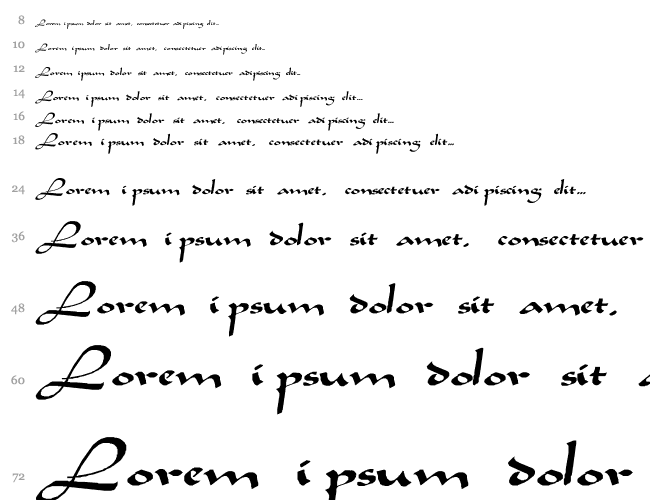 8 Lorem ipsum dolor sit amet, consectetuer adipiscing elit...
10 Lorem ipsum dolor sit amet, consectetuer adipiscing elit...
12 Lorem ipsum dolor sit amet, consectetuer adipiscing elit...
14 Lorem ipsum dolor sit amet, consectetuer adipiscing elit...
16 Lorem ipsum dolor sit amet, consectetuer adipiscing elit...
18 Lorem ipsum dolor sit amet, consectetuer adipiscing elit...
24 Lorem ipsum dolor sit amet, consectetuer adipiscing elit...
36 Lorem ipsum dolor sit amet, consectetuer
48 Lorem ipsum dolor sit amet,
60 Lorem ipsum dolor sit
72 Lorem ipsum dolor